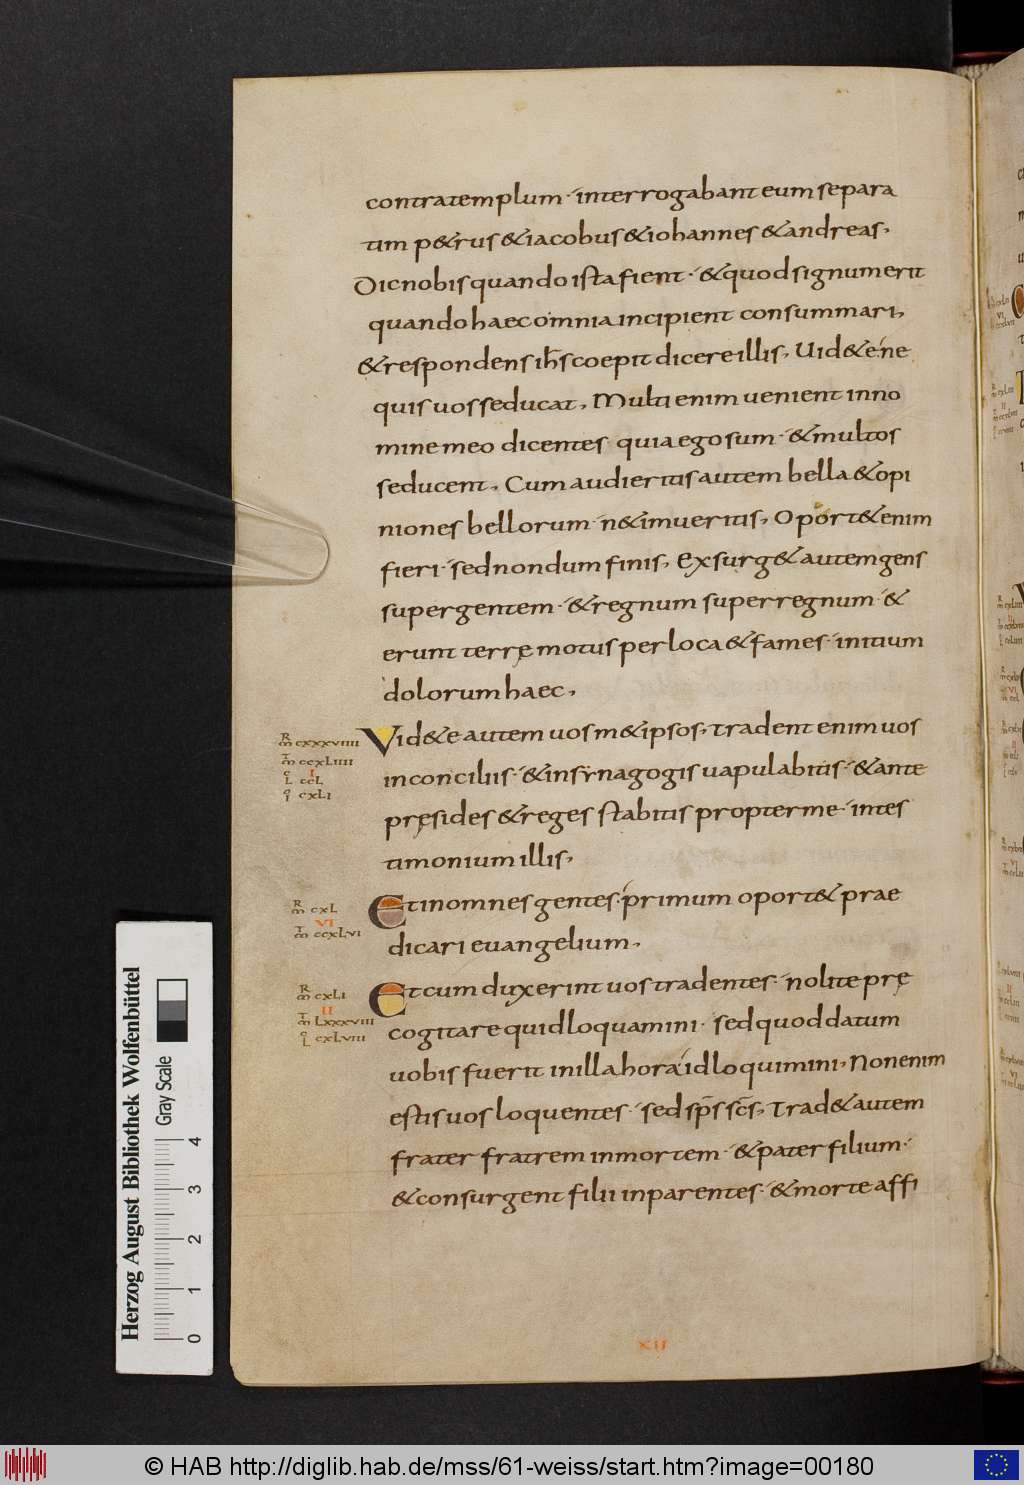 contra templum· interrogabant eum separa
tim p&rus & iacobus & iohannes & andreas,
Dic nobis quando ista fient· & quod signum erit
quando haec omnia incipient consummari,
& respondens ihs coepit dicere illis, Uid&e ne
quis uos seducat, Multi enim uenient in no
mine meo dicentes quia ego sum· & multos
seducent, Cum audieritis autem bella & opi
niones bellorum· ne timueritis, Oport& enim
fieri· sed nondum finis, Exsurg& autem gens
super gentem· & regnum super regnum· &
erunt terrę motus per loca & fames· initium
dolorum haec,
R m cxxxviiii
T m ccxLiiii
L ccL
I
i cxLi
Vid&e autem uosm&ipsos, tradent enim uos
in conciliis· & in synagogis uapulabitis· & ante
pręsides & reges stabitis propter me· in tes
timonium illis,
R m cxL
VI
T m ccxLvi
Et in omnes gentes· primum oport& prae
dicari euangelium,
R m cxLi
II
T m Lxxxviii
L cxLviii
Et cum duxerint uos tradentes· nolite prę
cogitare quid loquamini· sed quod datum
uobis fuerit in illa hora· id loquimini, Non enim
estis uos loquentes· sed sps scs, Trad& autem
frater fratrem in mortem· & pater filium·
& consurgent filii in parentes· & morte affi
XII
Herzog August Bibliothek Wolfenbüttel
Gray Scale
0 1 2 3 4
© HAB http://diglib.hab.de/mss/61-weiss/start.htm?image=00180